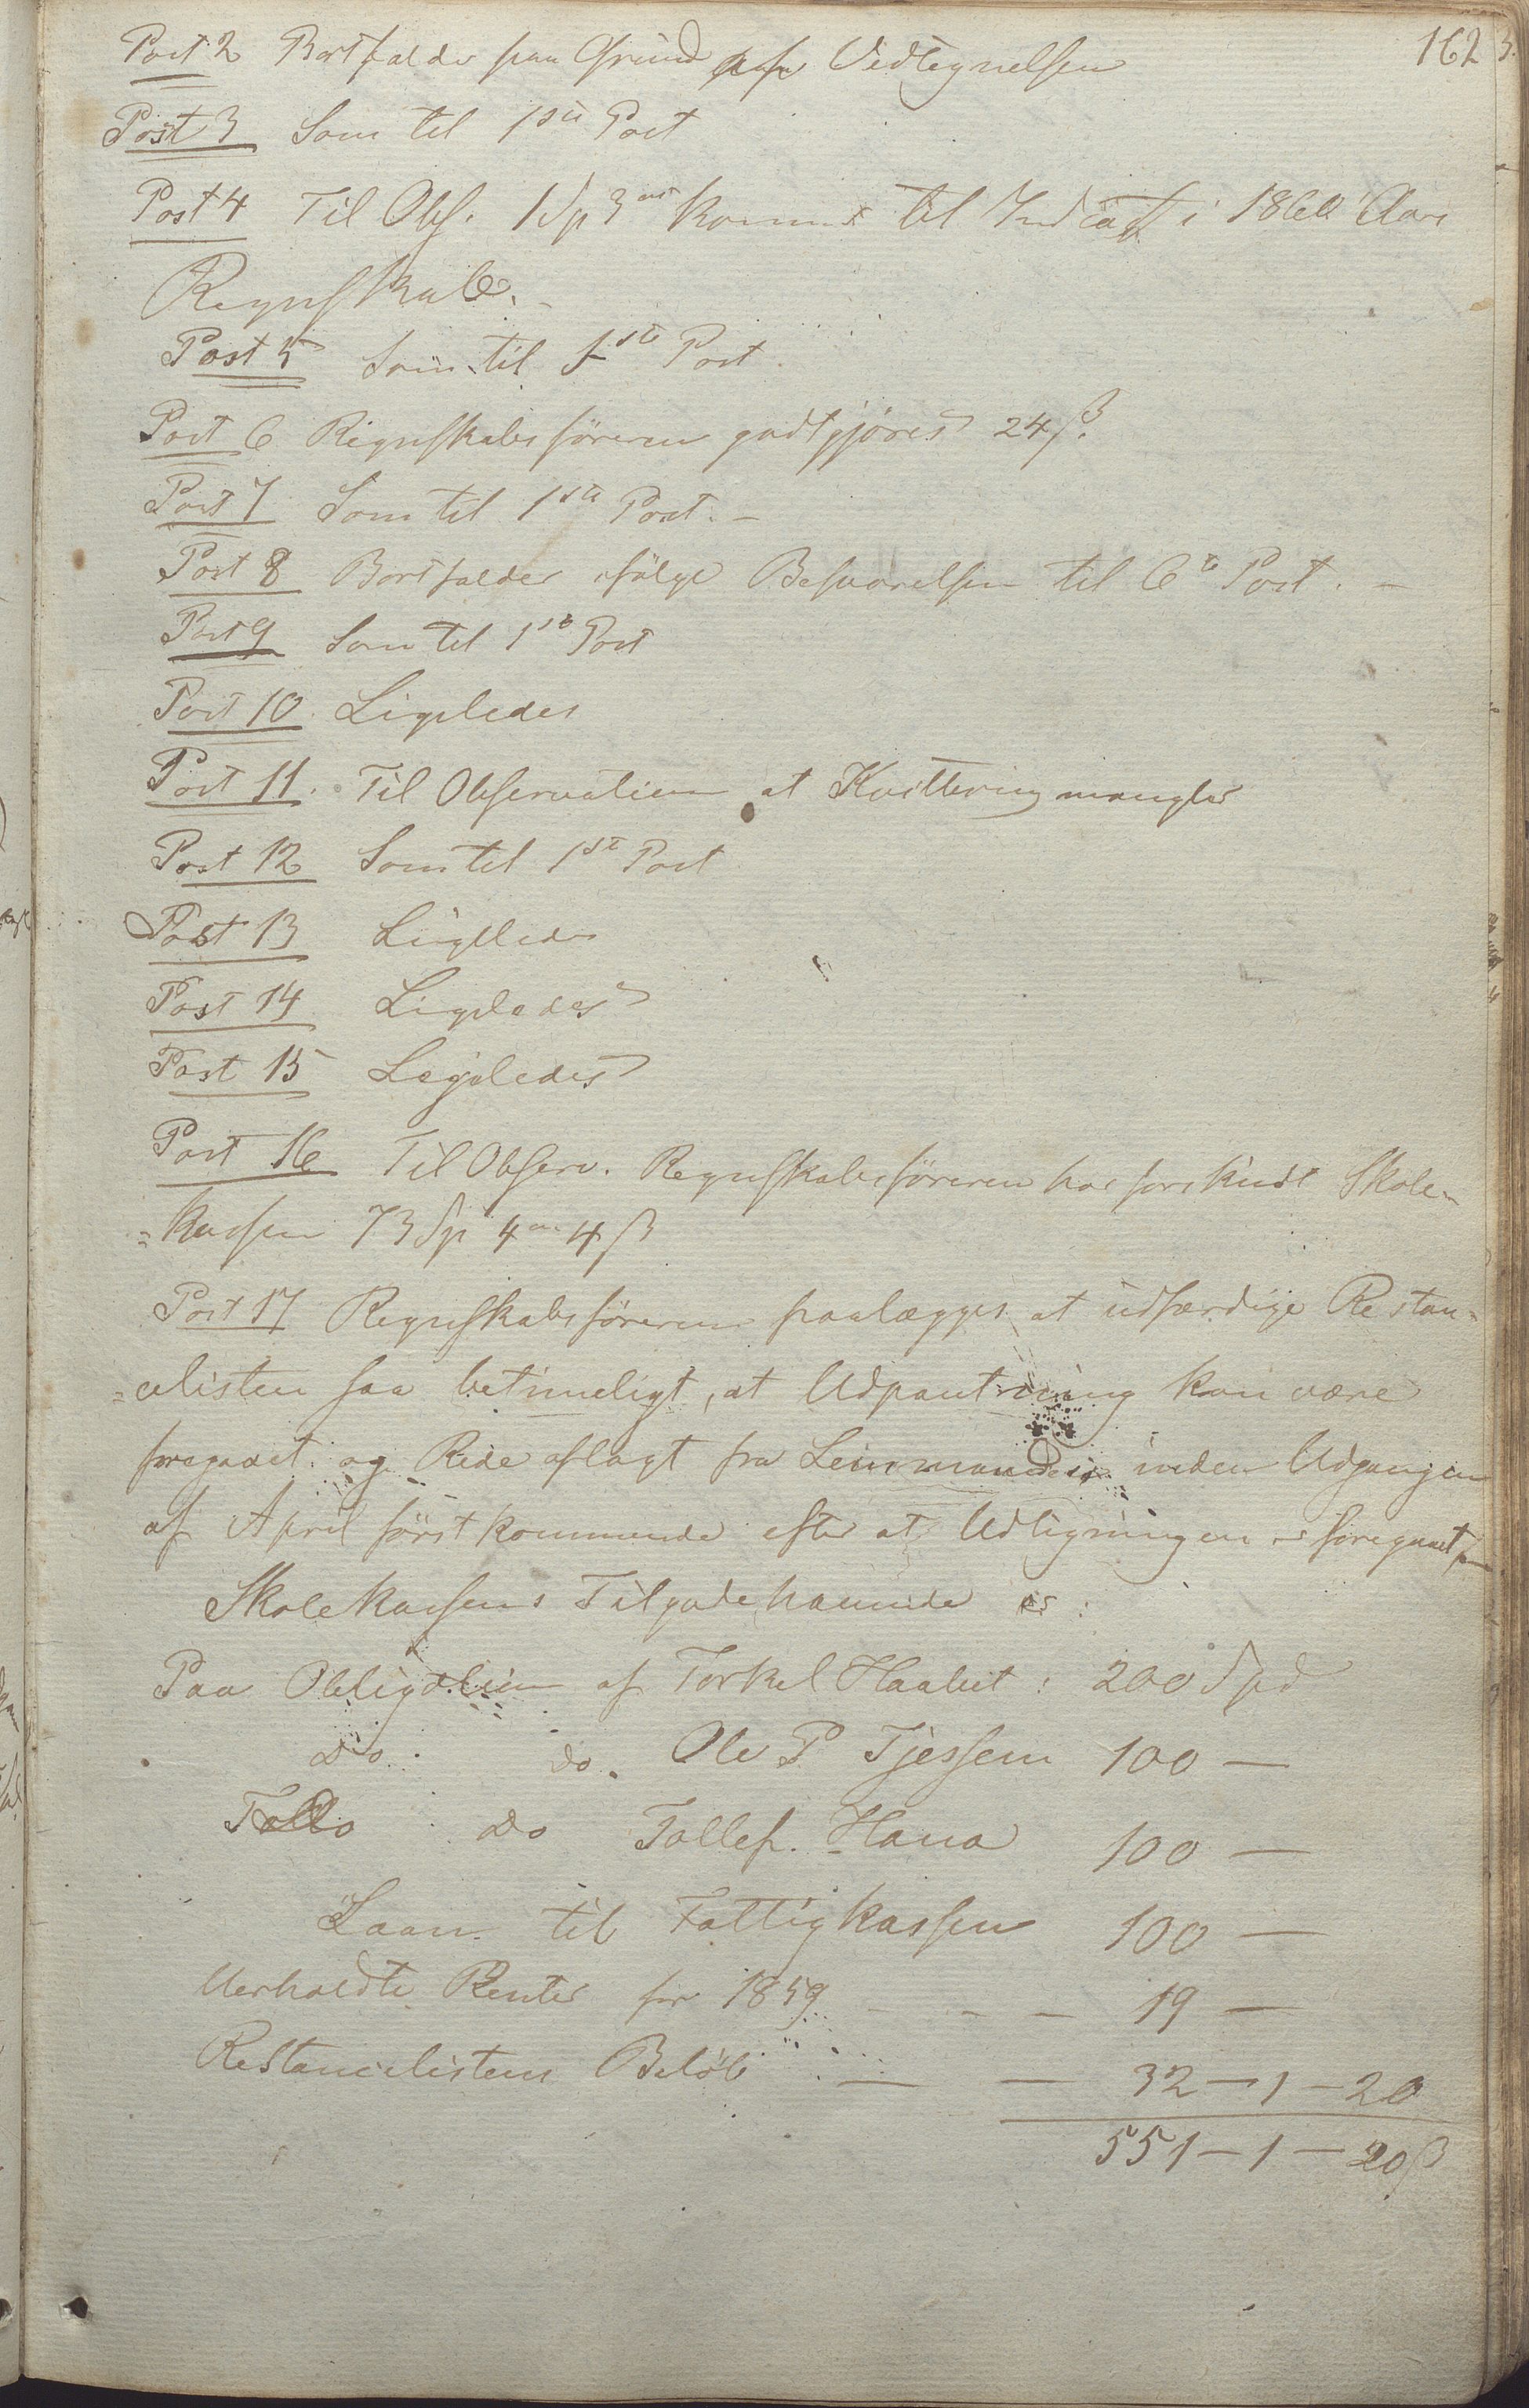 162
Post 2 Bortfalder paa Grund af Vedtegnelsen
Post 3 Som til 1ste Post
Post 4 Til Obs. 1 Sp 3 ort kommer til Indtægt i 1860 Aars
Regnskab.
Post 5 Som til 1ste Post.
Post 6 Regnskabsföreren godtgjöres 24 ß.
Post 7 Som til 1ste Post. –
Post 8 Bortfalder ifölge Besvarelsen til 6te Post. –
Post 9 Som til 1ste Post
Post 10. Ligeledes
Post 11. Til Observation at Kvittering mangler
Post 12 Som til 1ste Post
Post 13 Ligeledes
Post 14 Ligeledes
Post 15 Ligeledes
Post 16 Til Observ. Regnskabsföreren har forskudt Skole-
=kassen 73 Sp 4 ort 4 ß
Post 17 Regnskabsföreren paalægges at udfærdige Restan-
=celisten saa betimeligt, at Udpantning kan være
foregaaet og Rede aflagt fra Lensmanden inden Udgangen
af April förstkommende efter at Udligningen er foregaaet
Skolekassens Tilgodehavende er:
Paa Obligation af Torkel Haabet: 200 Spd
do. do. Ole P Tjessem 100 —
do do Tollef. Hana 100 —
Laan til Fattigkassen 100 —
Uerholdte Renter for 1859 – – – 19 —
Restancelistens Belöb — — 32 – 1 – 20
551 – 1 – 20 ß